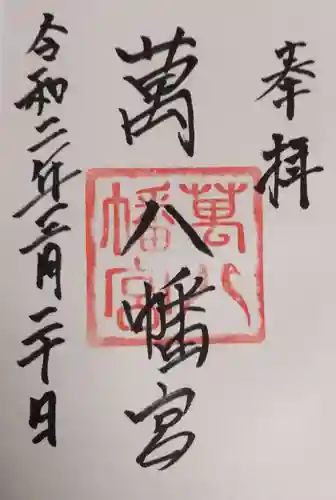 奉拝
萬八幡宮
萬八
幡宮
令和二年三月二十日